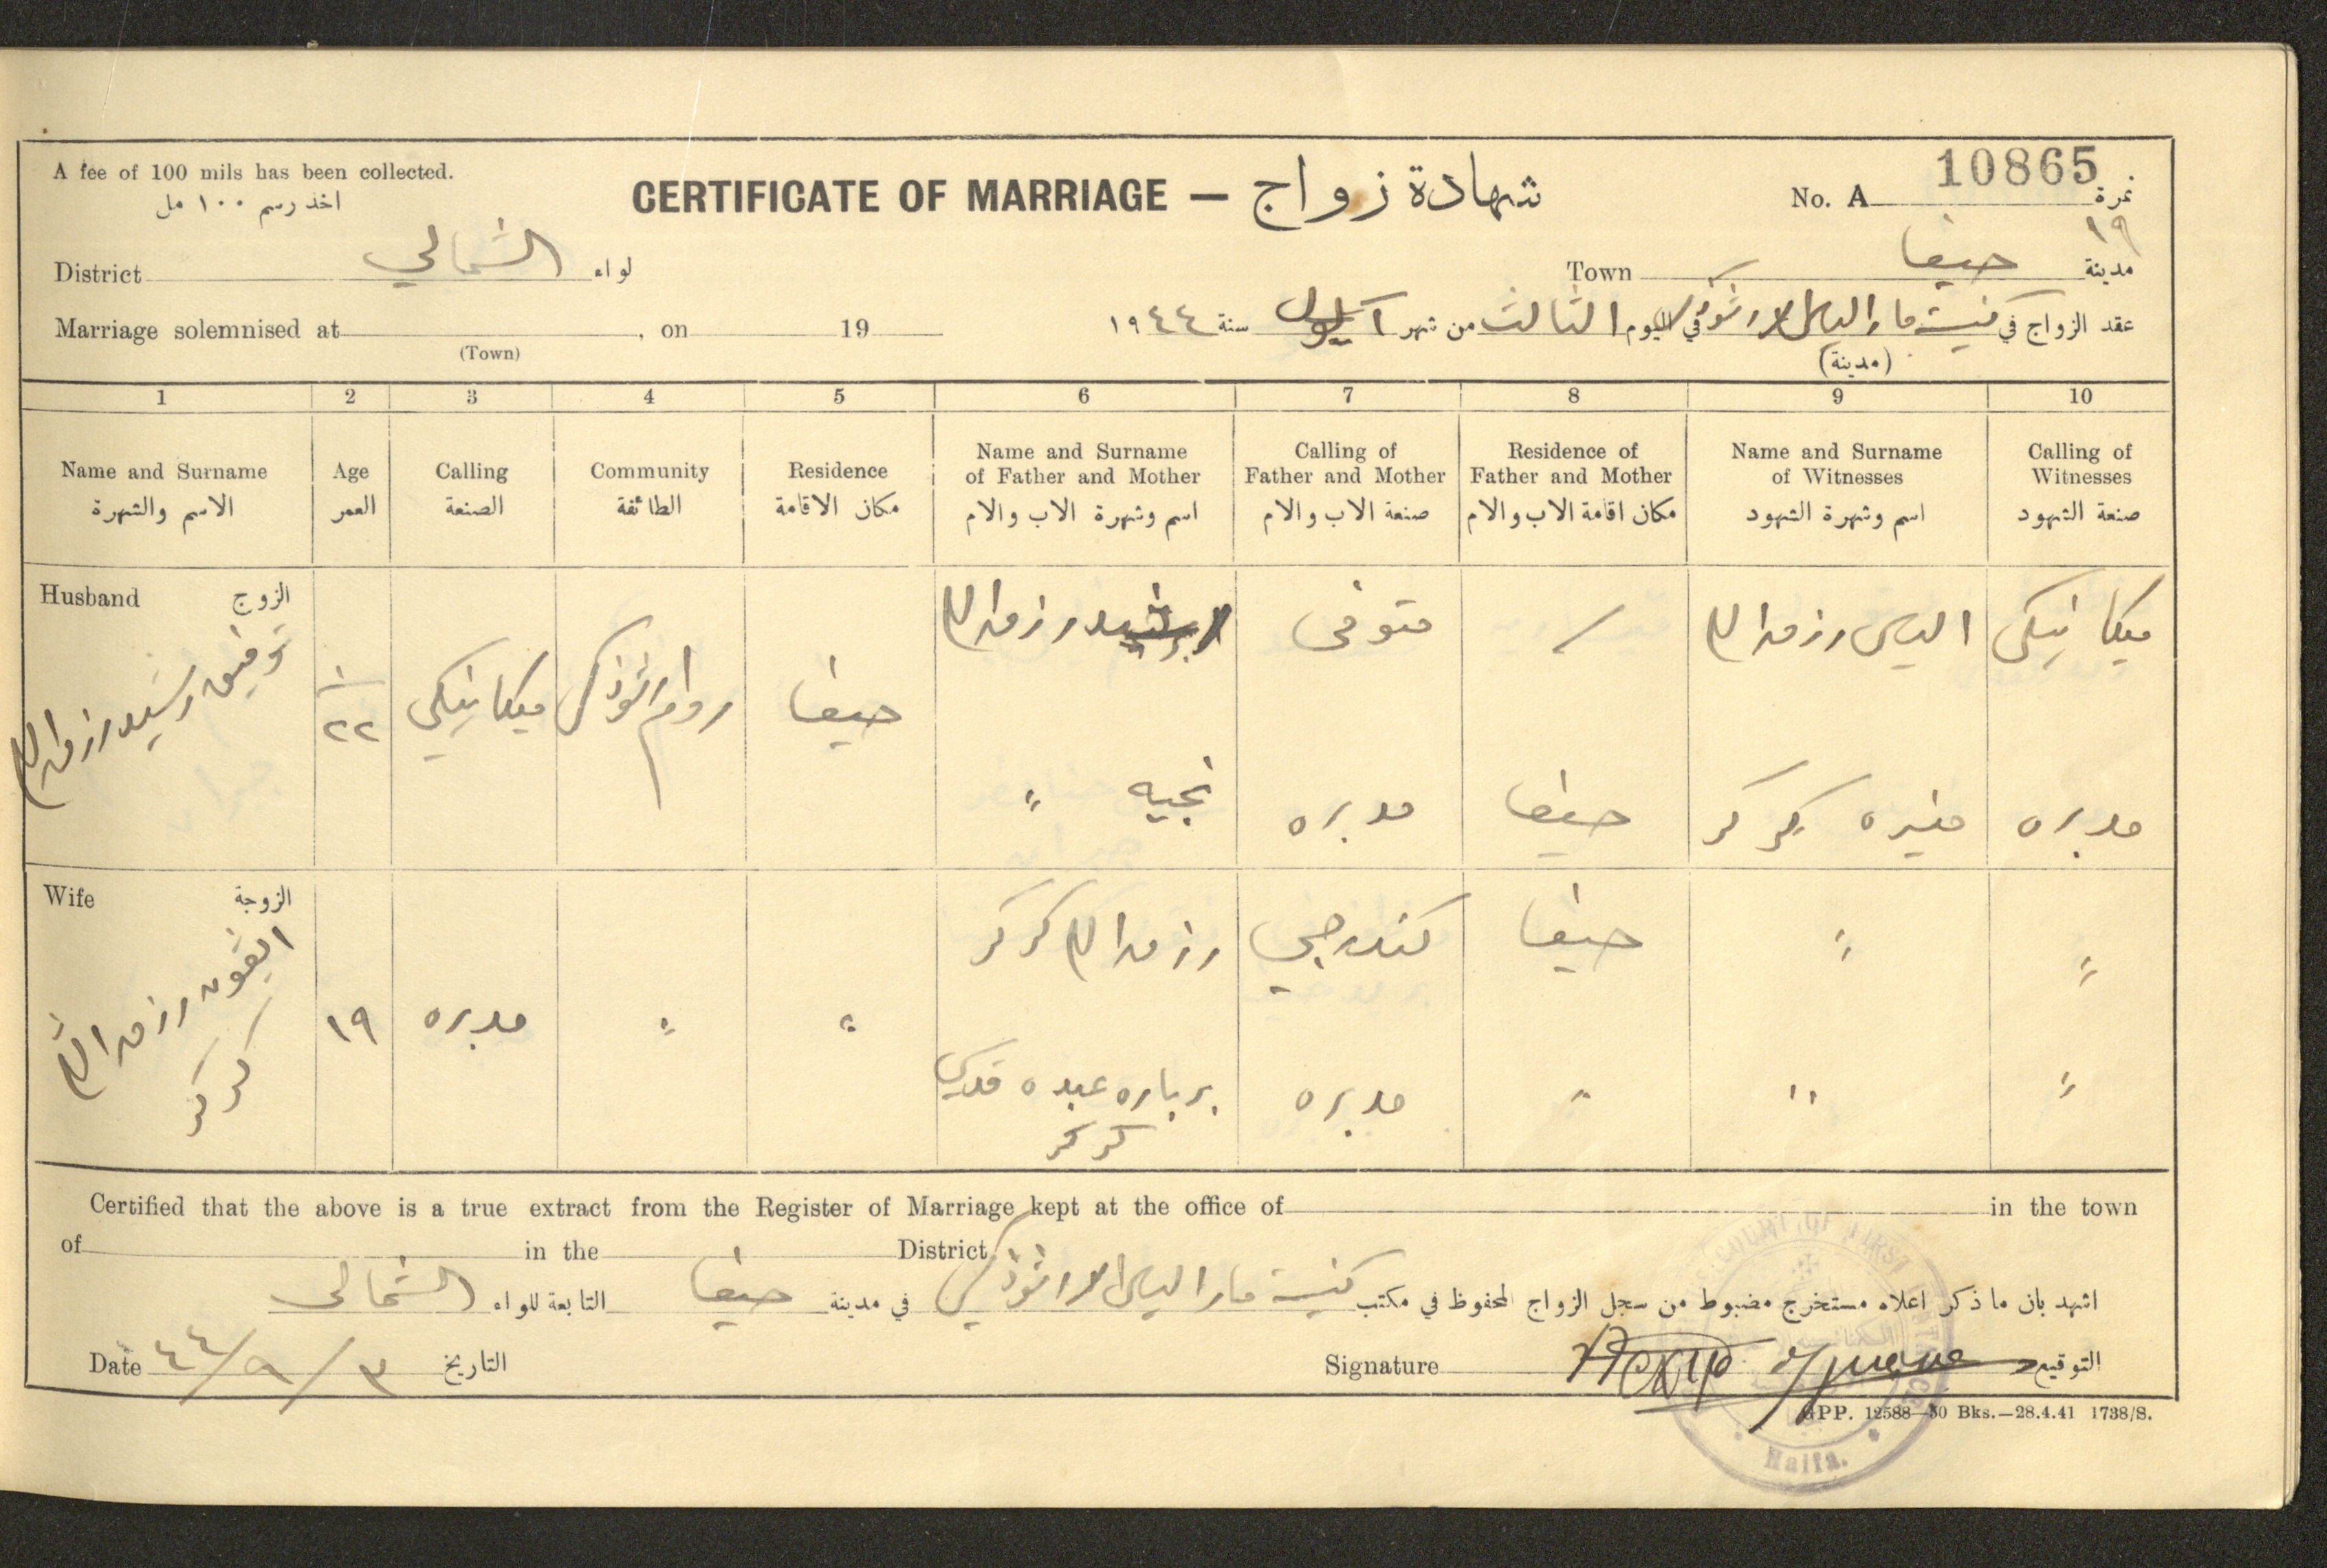 A fee of 100 mils has been collected.
اخذ رسم ١٠٠ مل
CERTIFICATE OF MARRIAGE — شهادة زواج
No. A 10865 نمرة
١٩
District الشمالي لواء
Town حيفا مدينة
Marriage solemnised at , on 19
(Town)
عقد الزواج في كنيسة مار الياس للارثوذكس في اليوم الثالث من شهر ايلول سنة ١٩٤٤
(مدينة)
1 2 3 4 5 6 7 8 9 10
Name and Surname الاسم والشهرة
Age العمر
Calling الصنعة
Community الطائفة
Residence مكان الاقامة
Name and Surname of Father and Mother اسم وشهرة الاب والام
Calling of Father and Mother صنعة الاب والام
Residence of Father and Mother مكان اقامة الاب والام
Name and Surname of Witnesses اسم وشهرة الشهود
Calling of Witnesses صنعة الشهود
Husband الزوج
توفيق رشيد رزق الله
٢٢
ميكانيكي
روم ارثوذكس
حيفا
رشيد رزق الله
متوفى
الياس رزق الله
ميكانيكي
نجيبه "
مدبره
حيفا
منيره كركر
مدبره
Wife الزوجة
رزق الله كركر
١٩
مدبره
"
"
رزق الله كركر
كندرجي
حيفا
"
"
برباره عبده قدسي كركر
مدبره
"
"
"
Certified that the above is a true extract from the Register of Marriage kept at the office of in the town
of in the District
اشهد بان ما ذكر اعلاه مستخرج مضبوط من سجل الزواج المحفوظ في مكتب كنيسة مار الياس للارثوذكس في مدينة حيفا التابعة للواء الشمالي
Date ٣/٩/٤٤ التاريخ
Signature التوقيع
GPP. 12588—50 Bks.—28.4.41 1738/S.
COURT OF FIRST
Haifa.